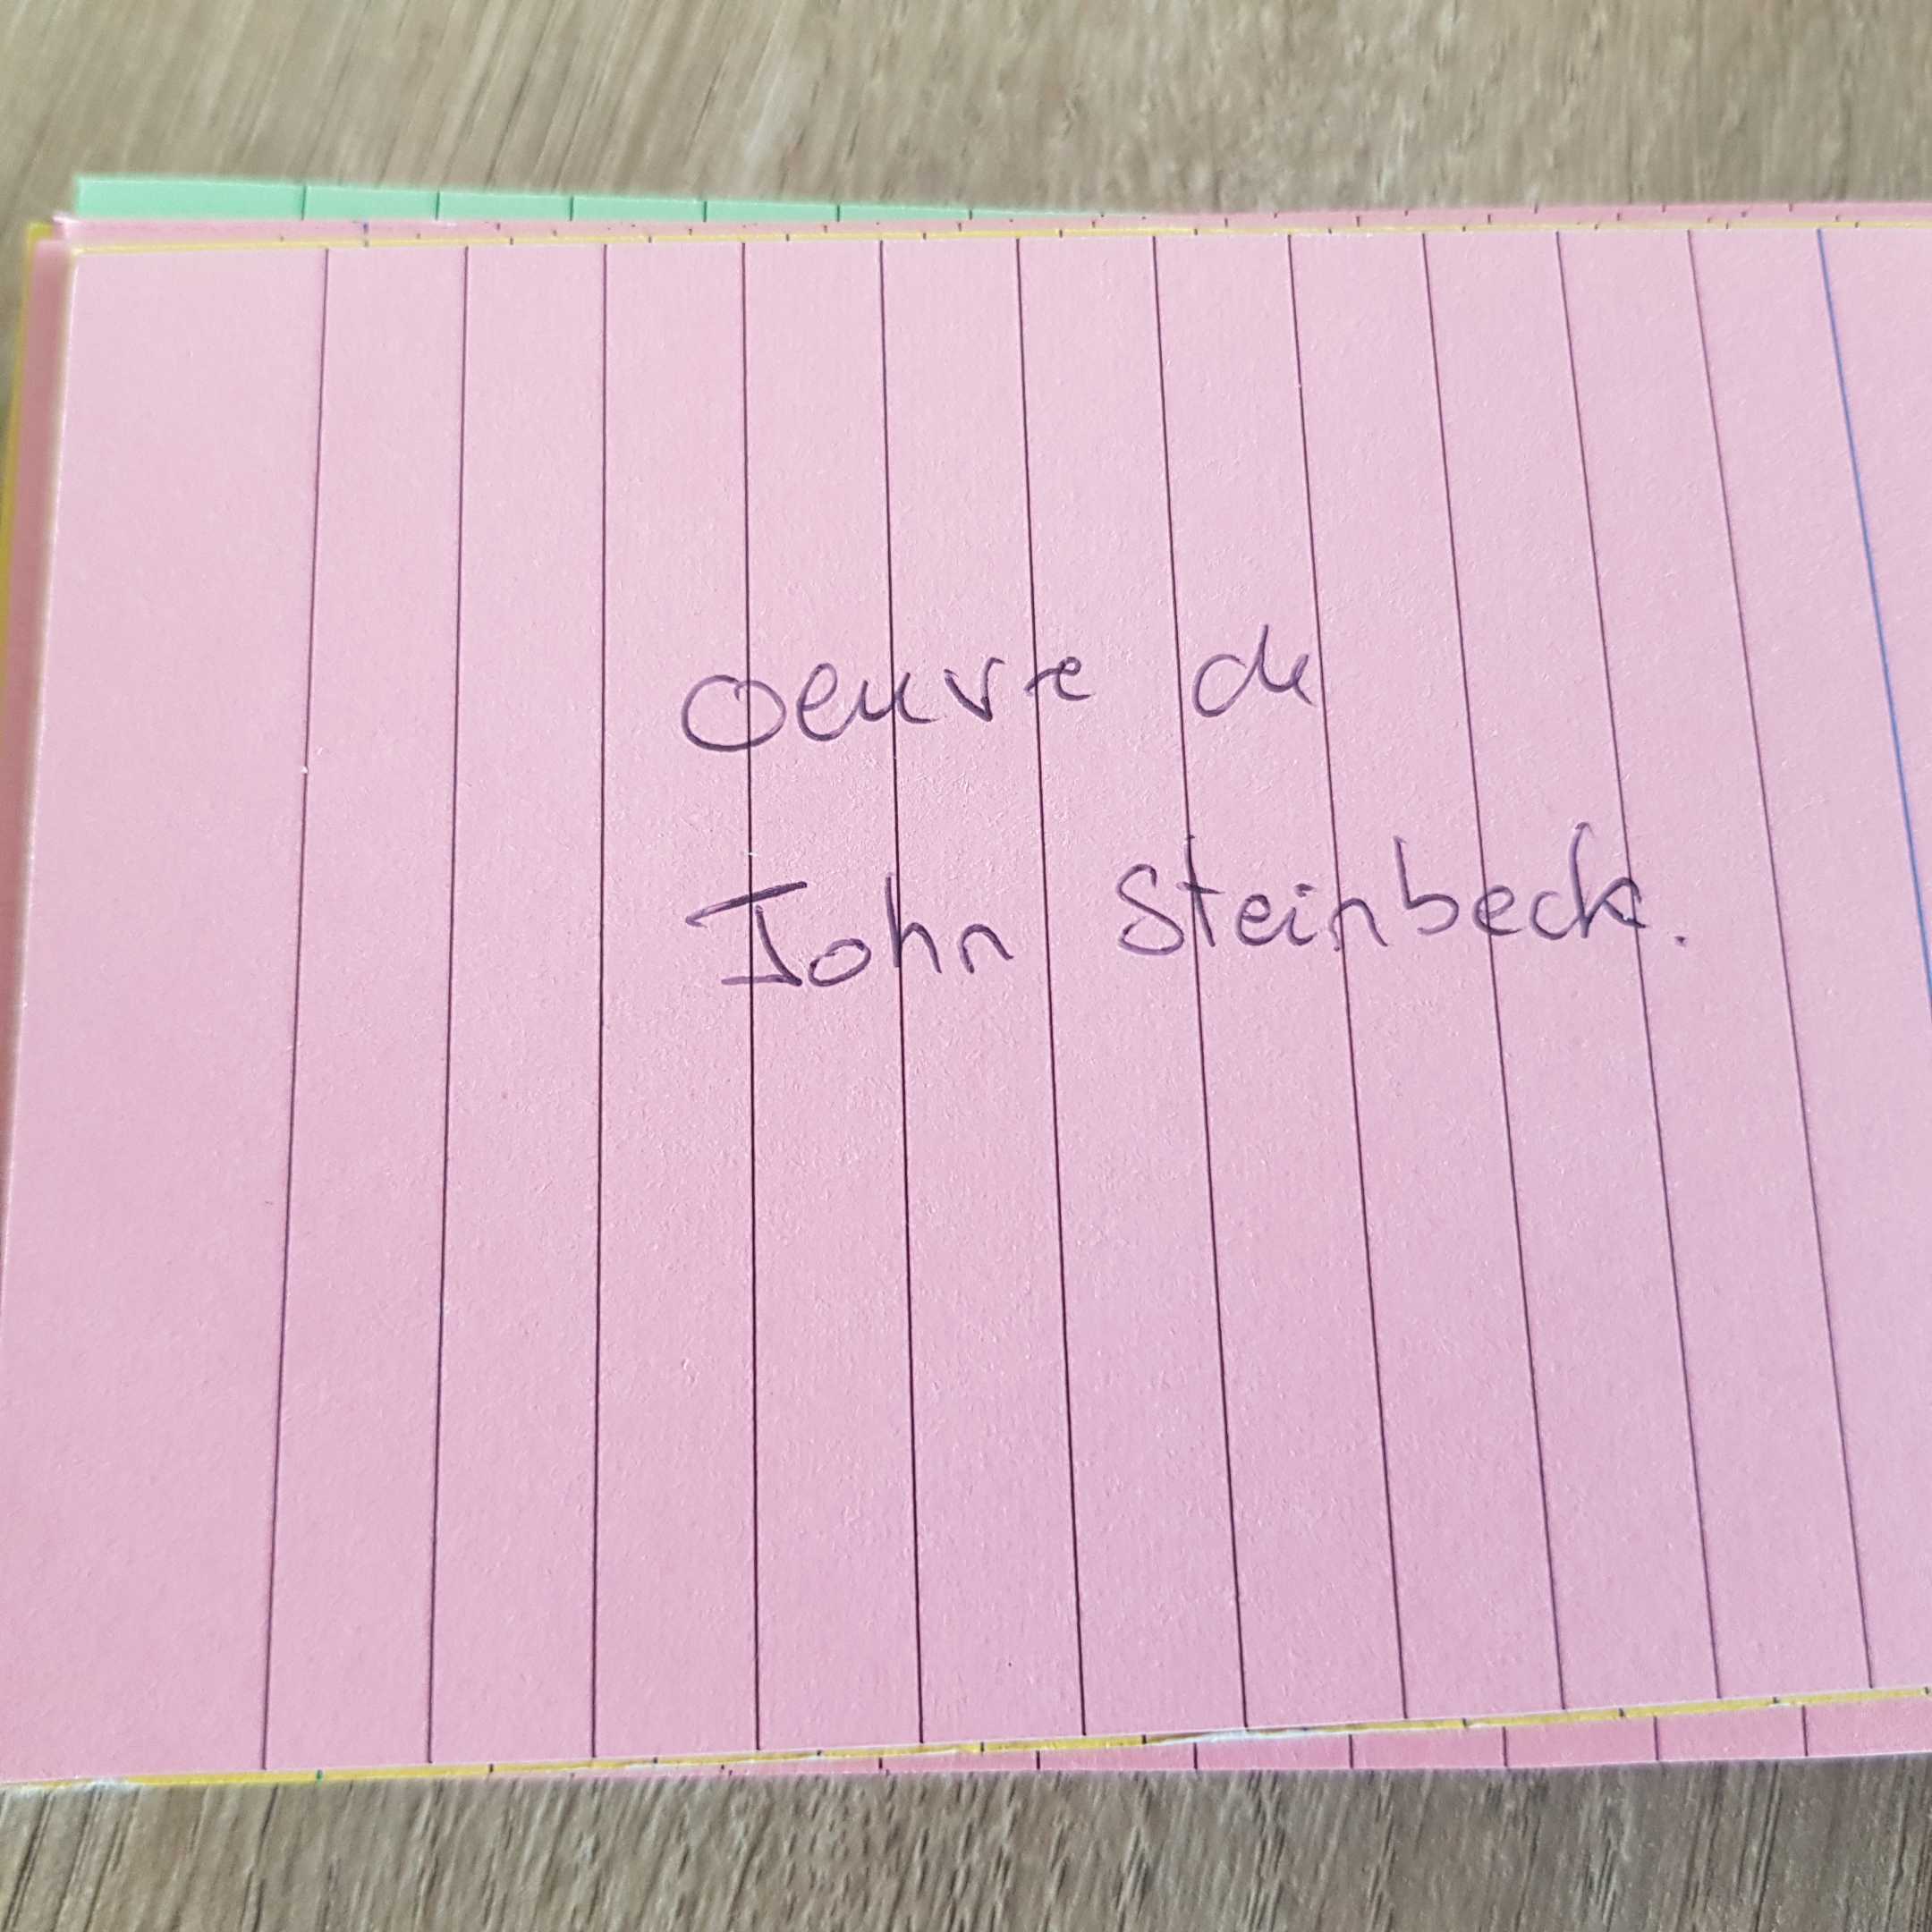 oeuvre de
John Steinbeck.